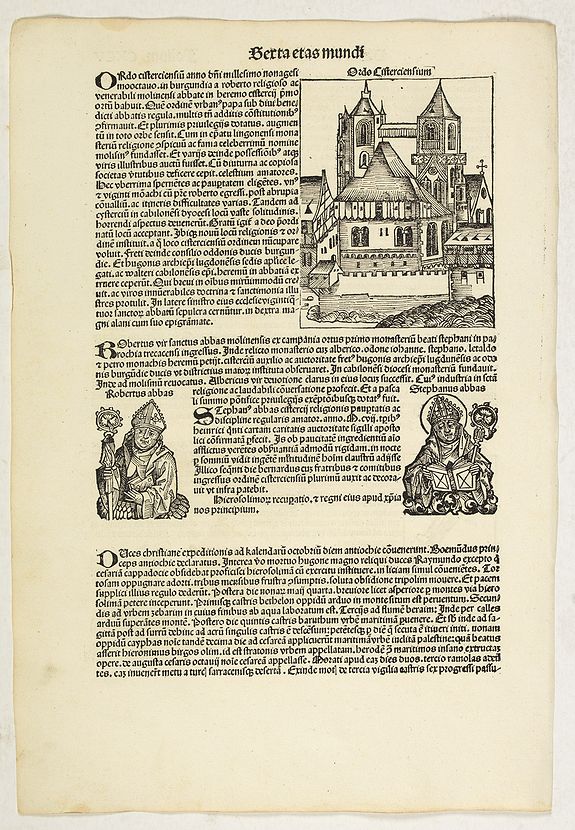 Sexta etas mundi
Ordo Cisterciensium
ORdo cisterciensiū anno dñi millesimo nonagesi
mooctauo. in burgundia a roberto religioso ac
venerabili molinensi abbate in heremo cistercij p̄mo
ortū habuit. Quē ordinē vrbanꝰ papa sub diui bene
dicti abbatis regula. multis tñ additis cōstitutionibꝰ
ↄfirmauit. Et plurimis priuilegijs dotatus. augmen
tū in toto orbe sensit. Cum in ep̄atu lingonensi mona
steriū religione ↄspicuū ac fama celeberrimū nomine
molismꝰ fundasset. Et varijs deinde possessiōibꝰ atqꝫ
viris illustribus auctū fuisset. Cū diuturna ac copiosa
societas virtutibus deficere cepit. celestium amatores.
Hec vberrima spernētes ac paupertatem eligētes. vnꝰ
& viginti mōachi cū pr̄e roberto egressi. post abrupta
cōualliū. ac itineris difficultates varias. Tandem ad
cysterciū in cabilonēsi dyocesi locū vaste solitudinis.
horrendi aspectus deuenerūt. Gratū igit̄ a deo p̄ordi
natū locū acceptant. Ibiqꝫ nouū locū religionis & or
dinē instituit. a q̄ loco cisterciensiū ordineꝫ nūcupare
voluit. freti deinde consilio oddonis ducis burgun-
die. Et hugonis archiep̄i lugdonēsis sedis aplice le-
gati. ac walteri cabilonēsis ep̄i. heremū in abbatiā ex
truere ceperūt. Qui breui in oībus mirūmmodū cre
uit. ac viros innūerabiles doctrina & sanctimonia illu
stres protulit. In latere sinistro eius ecclesie viginti q̄-
tuor sanctoꝝ abbatū sepulcra cernūtur. in dextra ma-
gni alani cum suo epigrāmate.
RObertus vir sanctus abbas molinensis ex campania ortus primo monasteriū beati stephani in pa-
rochia trecacensi ingressus. Inde relicto monasterio cuꝫ alberico. odone iohanne. stephano. letaldo
& petro monachis heremū petijt. cisterciū auxilio ac auctoritate fretꝰ hugonis archiep̄i lugdunēsis ac odo
nis burgūdie ducis vt districtius maioꝝ instituta obseruaret. In cabilonēsi diocesi monasteriū fundauit.
Inde ad molismū reuocatus. Albericus vir deuotione clarus in eius locuꝫ successit. Cuiꝰ industria in sctā
Robertus abbas
religione ac laudabili cōuersatione profecit. Et a pasca
li summo pōtifice priuilegijs exēptōibusqꝫ dotatꝰ fuit.
Stephanus abbas
Stephanꝰ abbas cistercij religionis paupertatis ac
discipline regularis amator. anno. M.cvij. tpībꝰ
heinrici q̄nti cartam caritatis auctoritate sigilli aposto
lici cōfirmatā ꝑfecit. Is ob paucitatē ingredientiū alo
afflictus verētes obseruantiā admodū rigidam. in nocte
ꝑ somniū vidit ingētē multitudinē hoīm claustrū adijsse
Illico seqn̄ti die bernardus cuꝫ fratribus & comitibus
ingressus ordinē cisterciensiū plurimū auxit ac decora-
uit vt infra patebit.
Hierosolimoꝝ recupatio. & regni eius apud xp̄ia
nos principium.
DUces christiane expeditionis ad kalendarū octobriū diem antiochie cōuenerunt. Boemūdus prin
ceps antiochie declaratus. Interea v̄o mortuo hugone magno reliqui duces Raymundo excepto q̄
cesariā cappadocie obsidebat proficisci hierosolimā cū exercitu instituere. in liciam simul cōueniētes. Tor
tosam oppugnare adorti. tribus mensibus frustra ↄsumptis. soluta obsidione tripolim mouere. Et pacem
supplici illius regulo dederūt. Postera die nonaꝝ maij quarta. breuiore licet asperiore ꝑ montes via hiero
solimā petere inceperunt. Primisqꝫ castris beibelon oppidū arduo in monte situm est peruentum. Secun
dis ad vrbem zebarim in cuius finibus ab aqua laboratum est. Tercijs ad flumē beraim: Inde per calles
arduū superātes montē. Postero die quintis castris baruthum vrbē maritimā ꝑuenere. Et sb̄ inde ad sa-
gittā post ad surrū debinc ad acrū singulis castris ē descēsum: petētesqꝫ p̄ diē q̄ secuta ē itineri initi. nonam
oppidū cayphas noīe tandē decima die ad cesareā applicuerūt maritimā vrbē inclitā palestine: quā beatus
asserit hieronimus birgos olim. id est stratonis vrbem appellatam. herodē ꝓ maritimos insano extructaꝫ
opere. de augusta cesaris octauij noīe cesareā appellasse. Morati apud eaꝫ dies duos. tercio ramolas adeū
tes. eaꝫ inuenēr̄t metu a turcꝭ sarracenisqꝫ desertā. Exinde moti de tercia vigilia castris sex progressi passu-